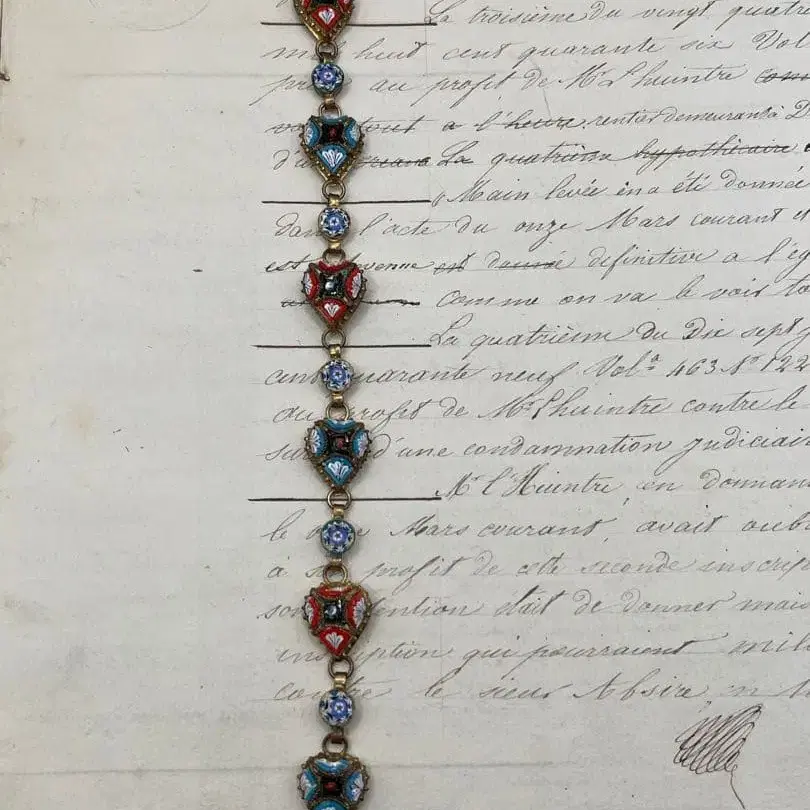 La troisième du vingt quatre
mil huit cent quarante six Vol
au profit de Mr Lhuintre
tout a l'heure, rentier demeurant à D
La quatrième hypothécaire
Main levée en a été donnée
dans l'acte du onze Mars courant
est devenue est donné definitive a l'ég
comme on va le voir
La quatrième du Dix sept
cent quarante neuf Vol. 463 No 122
au profit de Mr Lhuintre contre le
d'une condamnation judiciair
Mr l'Huintre, en donnan
le Mars courant, avait oubl
à profit de cette seconde inscrip
intention était de donner main
inscription qui pourraient
contre le sieur